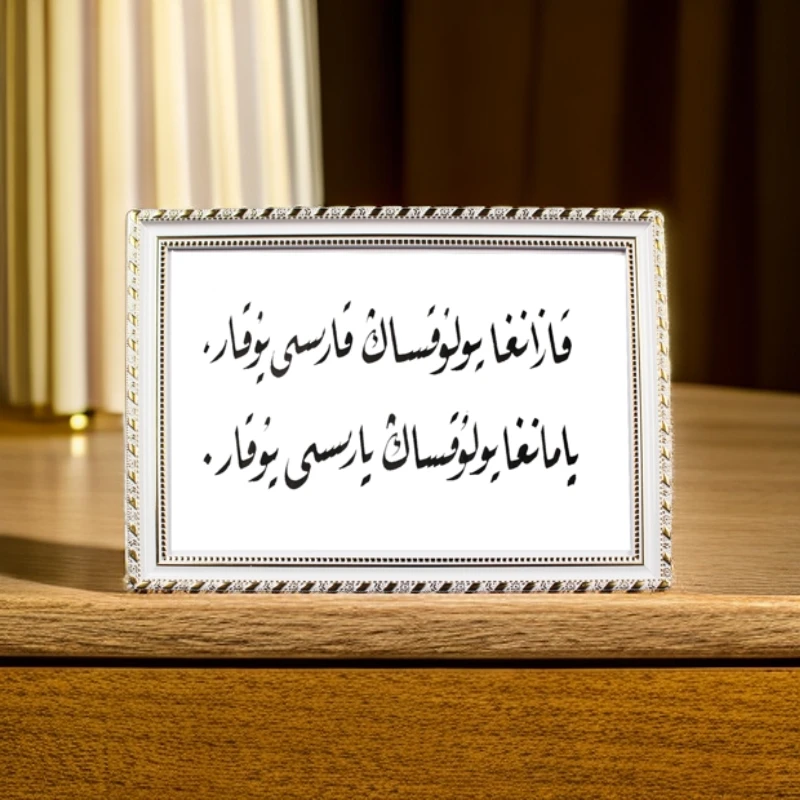 قازانغا يولۇقساڭ قارىسى يۇقار،
يامانغا يولۇقساڭ يارىسى يۇقار.